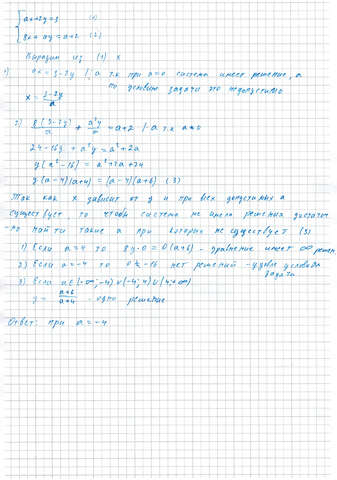 ax+2y=3 (1)
8x+ay=a+2 (2)
Выразим из (1) x
1) ax = 3-2y | :a т.к при a=0 система имеет решение, а
по условию задачи это недопустимо
x = \frac{3-2y}{a}
2) \frac{8(3-2y)}{a} + \frac{a^2y}{a} = a+2 | ·a т.к a≠0
24-16y + a^2y = a^2+2a
y(a^2-16) = a^2+2a-24
y(a-4)(a+4) = (a-4)(a+6) (3)
Так как x зависит от y и при всех допустимых a
существует то чтобы система не имела решения достаточ-
но найти такие a при которых не существует (3)
1) Если a=4 то 8y·0=0(a+6) - уравнение имеет ∞ решен
2) Если a=-4 то 0≠-16 нет решений - удовл условию
задачи
3) Если a∈(-∞;-4)∪(-4;4)∪(4;+∞)
y = \frac{a+6}{a+4} - одно решение
Ответ: при a=-4